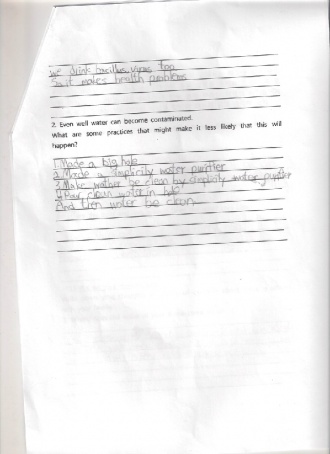 we drink bacillus, virus too
So it makes health problems
2. Even well water can become contaminated.
What are some practices that might make it less likely that this will
happen?
1. Made a big hole
2. Made a simplicity water purifier
3. Make wather be clean by simplicity water purifier
4. Pour clean water in hole
And then water be clean